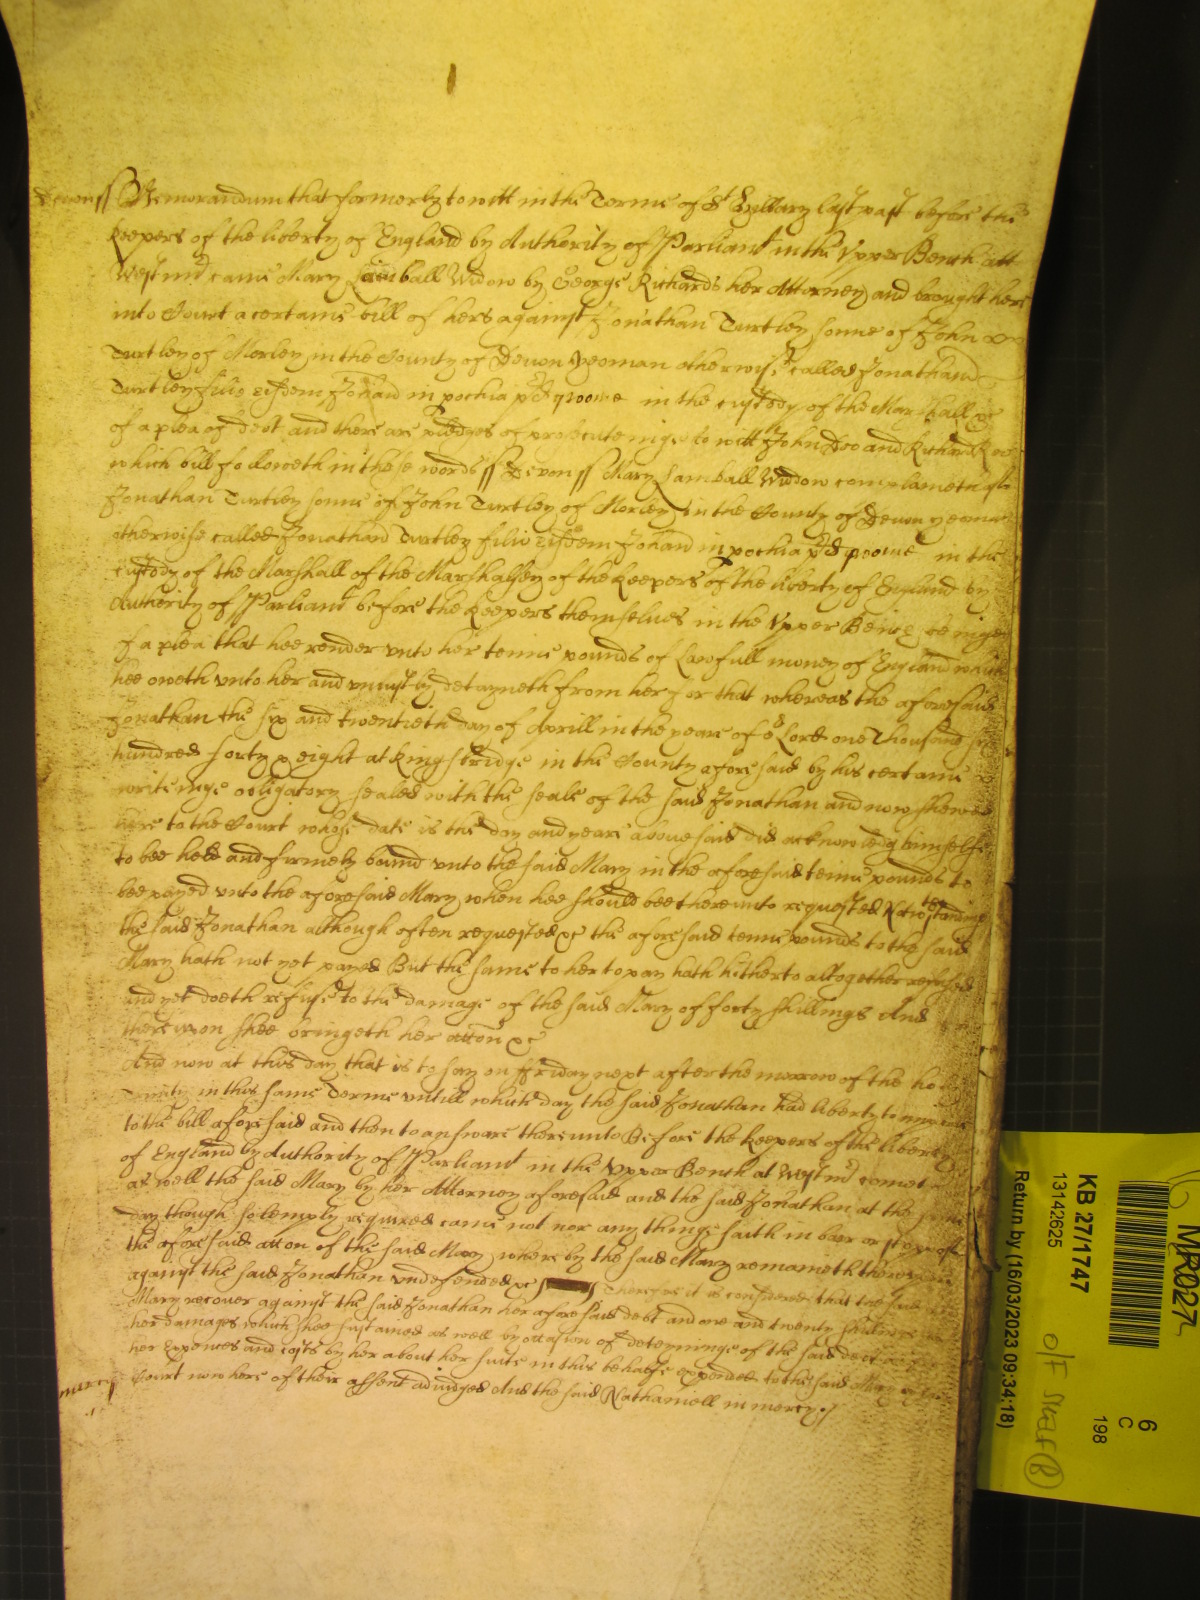 Devon ss Memorandum that formerly to witt in the Terme of St Hillary last past before the
Keepers of the liberty of England by Authority of Parliamt in the Upper Bench att
Westmr came Mary Lamball Widow by George Richards her Attorney and brought here
into Court a certaine bill of hers against Jonathan Turtley sonne of John
Turtley of Morley in the County of Devon yeoman otherwise called Jonathand
Turtley filio eisdem Johand in pochia pd in the custody of the Marshall &c
of a plea of debt and there are pledges of prosecuteinge to witt John Doo and Richard Roo
which bill followeth in these words ss Devon ss Mary Lamball Widdow complaineth of
Jonathan Turtley sonne of John Turtley of Morley in the County of Devon yeoman
otherwise called Jonathand Turtley filio eisdem Johand in pochia pd in the
custody of the Marshall of the Marshalsey of the Keepers of the liberty of England by
Authority of Parliamt before the Keepers themselues in the Upper Bench beinge
of a plea that hee render unto her tenne pounds of Lawfull money of England which
hee oweth unto her and uniustly detayneth from her for that whereas the aforesaid
Jonathan the six and twentieth day of Aprill in the yeare of or Lord one Thousand six
hundred forty & eight at Kingsbridge in the County aforesaid by his certaine
writeinge obligatory sealed with the seale of the said Jonathan and now shewed
here to the Court whose date is the day and yeare aboue said did acknowledg himselfe
to bee held and firmely bound unto the said Mary in the aforesaid tenne pounds to
bee payed unto the aforesaid Mary when hee should bee thereunto requested Natwthstandinge
the said Jonathan although often requested &c the aforesaid tenne pounds to the said
Mary hath not yet payed But the same to her to pay hath hitherto altogether refused
and yet doeth refuse to the damage of the said Mary of forty shillings And
thereupon shee bringeth her accon &c
And now at this day that is to say on ffriday next after the morrow of the holy
Trinity in this same Terme untill which day the said Jonathan had liberty to imparle
to the bill aforesaid and then to answere thereunto Before the Keepers of the liberty
of England by Authority of Parliamt in the Upper Bench at Westmr cometh
as well the said Mary by her Attorney aforesaid and the said Jonathan at the same
day though solemply required came not nor any thinge saith in barr or
the aforesaid accon of the said Mary where by the said Mary remaineth
against the said Jonathan undefended &c Therefore it is considered that the said
Mary recouer against the said Jonathan her aforesaid debt and one and twenty shillings
her damages which shee sustained as well by occasion of deteininge of the said debt as
her Expences and costs by her about her suite in this behalfe expended to the said Mary by the
mercy Court now here of their assent adiudged And the said Nathaniell in mercy &c
MR027
6
C
198
KB 27/1747
13142625
O/F
Return by (16/03/2023 09:34:18)